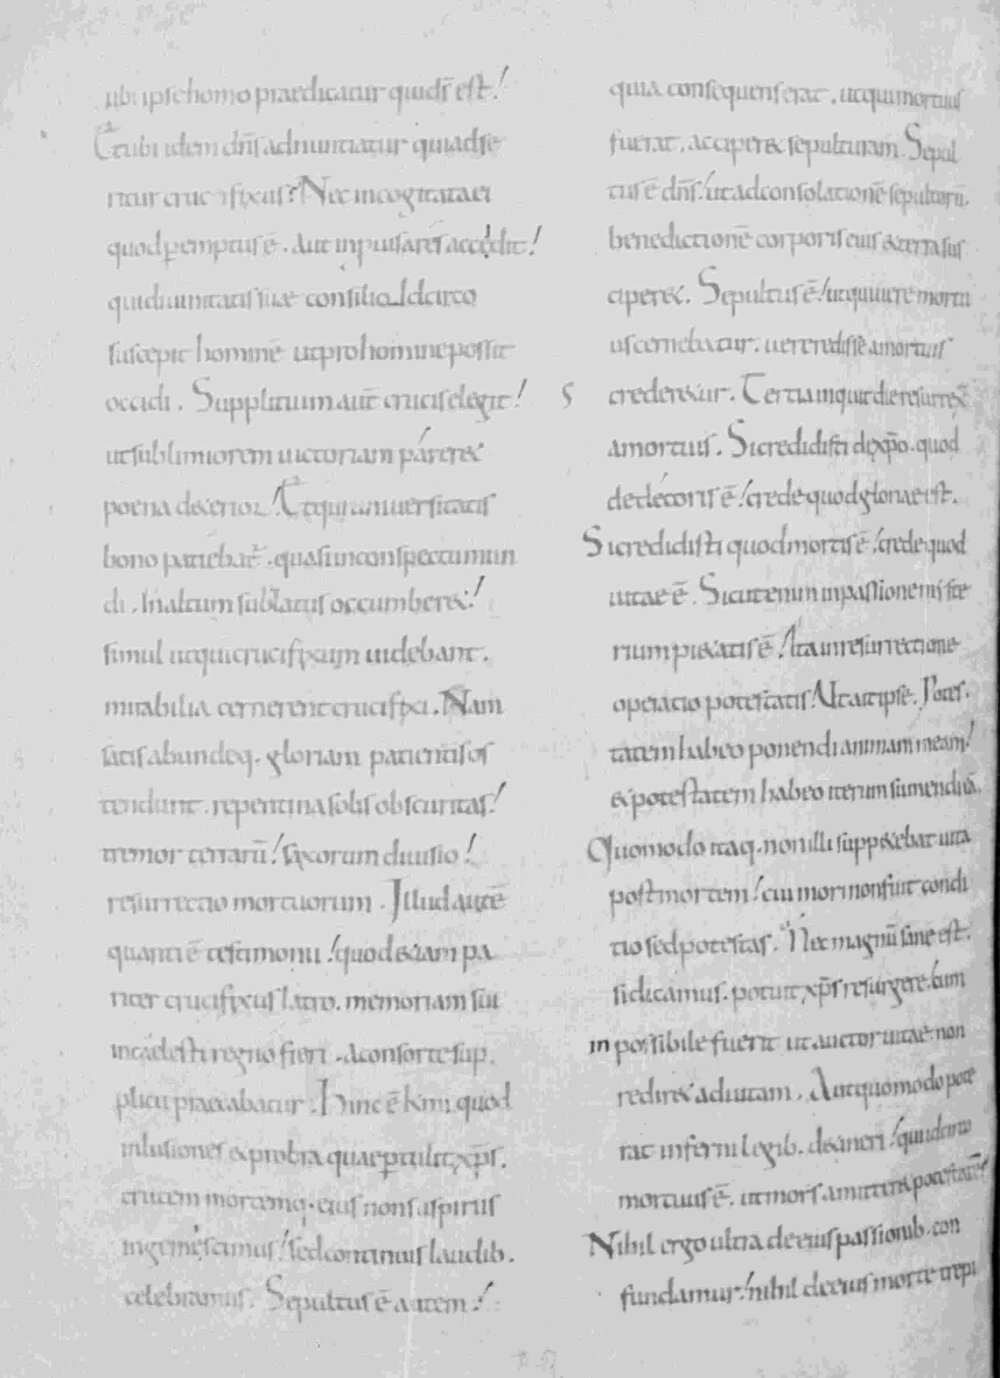 ubi ipse homo praedicatur qui dš est.
Et ubi idem dns̄ adnuntiatur qui adse
ritur crucifixus? Nec incogitata ei
quod peremptus ē. aut inpuisa res accedit!
qui diuinitatis suae consilio. Idcirco
suscepit hominē ut pro homine possit
occidi. Supplitium aut̄ crucis elegit!
ut sublimiorem uictoriam pareret
poena deterior. Et qui uniuersitatis
bono patiebat̄. quasi in conspectu mun
di. In altum sublatus occumberet!
simul ut qui crucifixum uidebant.
mirabilia cernerent crucifixi. Nam
satis abundeq. gloriam patientis os
tendunt. repentina solis obscuritas!
tremor terrarū! saxorum diuisio!
resurrectio mortuorum. Illud autē
quanti ē testimonii! quod etiam pa
riter crucifixus latro. memoriam sui
in caelesti regno fieri. a consorte sup
plicii praecabatur. Hinc ē kmi quod
inlusiones et probra quae pertulit xp̄s.
crucem mortemq. eius non suspirus
ingemescimus! sed continuis laudib.
celebramus. Sepultus ē autem!
quia consequens erat. ut qui mortuus
fuerat. acciperet sepulturam. Sepul
tus ē dns̄! ut ad consolationē sepultorū.
benedictionē corporis eius et terra sus
ciperet. Sepultus ē! ut qui uiuere mortu
us cernebatur. uere redisse a mortuis
5 crederetur. Tertia inquit die resurrex̄
a mortuis. Si credidisti de xp̄o. quod
dedecoris ē! crede quod gloriae est.
Si credidisti quod mortis ē! crede quod
uitae ē. Sicut enim in passione miste
rium pietatis ē! Ita in resurrectione
operatio potestatis! Ut ait ipse. Potes.
tatem habeo ponendi animam meam!
et potestatem habeo iterum sumendi eā.
Quomodo itaq. non illi suppetebat uita
post mortem! cui mori non fuit condi
tio sed potestas. Nec magnū sane est.
si dicamus. potuit xp̄s resurgere. cum
inpossibile fuerit ut auctor uitae. non
rediret ad uitam. Aut quomodo pote
rat inferni legib. detineri! qui idcirco
mortuus ē. ut mors amitteret potestatē!
Nihil ergo ultra de eius passionib. con
fundamur! nihil de eius morte trepi